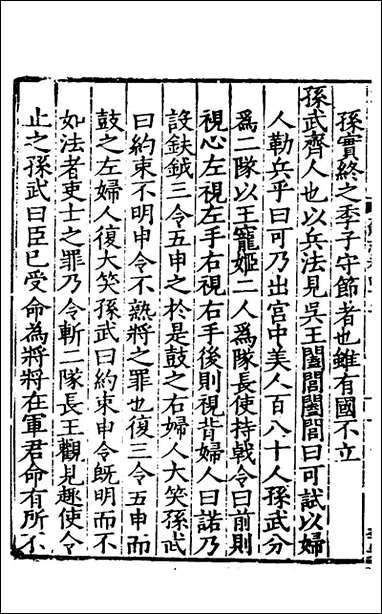 孫實終之季子守節者也雖有國不立
孫武齊人也以兵法見吳王闔閭闔閭曰可試以婦
人勒兵乎曰可乃出宮中美人百八十人孫武分
爲二隊以王寵姬二人爲隊長使持戟令曰前則
視心左視左手右視右手後則視背婦人曰諾乃
設鈇鉞三令五申之於是鼓之右婦人大笑孫武
曰約束不明申令不熟將之罪也復三令五申而
鼓之左婦人復大笑孫武曰約束申令既明而不
如法者吏士之罪乃令斬二隊長王觀見趣使令
止之孫武曰臣已受命為將將在軍君命有所不